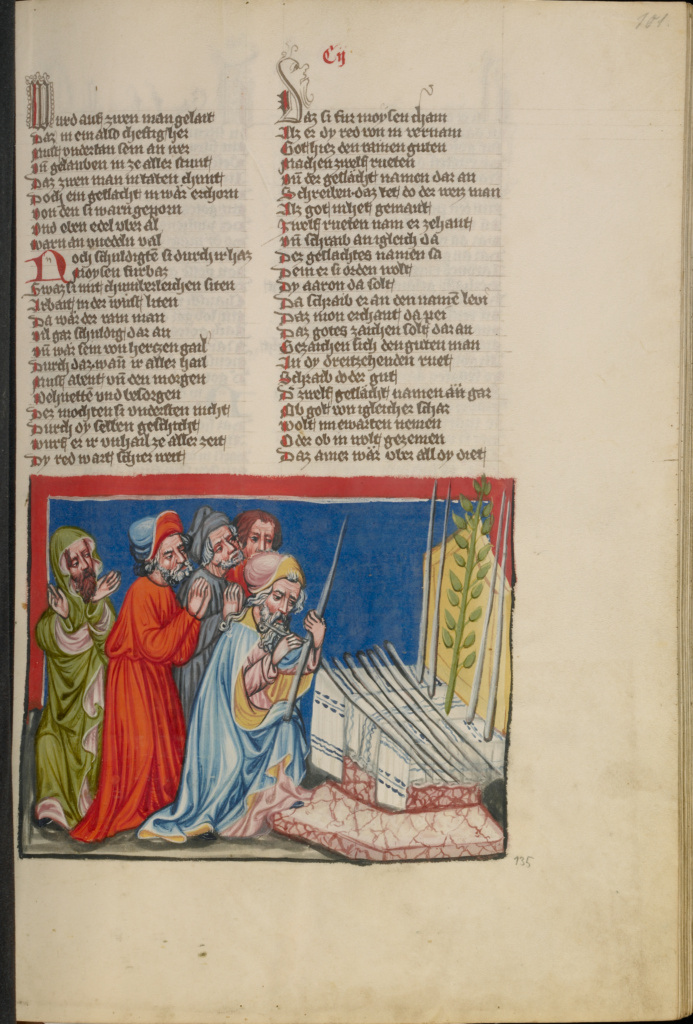 101.
Cij
Wurd auf zwen man gelait
Daz in ein also cheftig her
Must vndertan sein an wer
Vn̄ gelauben in ze aller stunt
Daz zwen man in taten chunt
Doch ein geslächt in wär erchorn
Von den si warn geporn
Vnd eben edel vber al
Warn an vnedeln val
Noch schuldigtē si durch ir haz
Moysen fürbaz
Swaz si mit chumberleichen siten
Arbait in der wüst liten
Da wär der rain man
Vil gar schuldig dar an
Vn̄ wär sein von hertzen gail
Durch daz wan̄ ir aller hail
Must abent vn̄ den morgen
Behuetten vnd besorgen
Des mochten si vndersten nicht
Durch dy selben geschicht
Wurf er ir vnhail ze aller zeit
Dy red wart schier weit
Daz si für moysen cham
Als er dy red von in vernam
Got hiez den rainen guten
Machen zwelf rueten
Vn̄ der geslächt namen dar an
Schreiben daz tet do der weis man
Als got in het gemant
Zwelf rueten nam er zehant
Vn̄ schraib an igleich da
Des geslächtes namen sa
Dem er si orden wolt
Dy aaron da solt
Da schraib er an den namē levi
Daz mon erchant da pei
Daz gotes zaichen solt dar an
Bezaichen sich den guten man
In dy dreitzehenden ruet
Schraib do der gut
D zwelf geslächt namen an̄ gar
Ob got von igleicher schar
Wolt im ewarten nemen
Oder ob in wolt gezemen
Daz ainer wär vber all dy diet
135